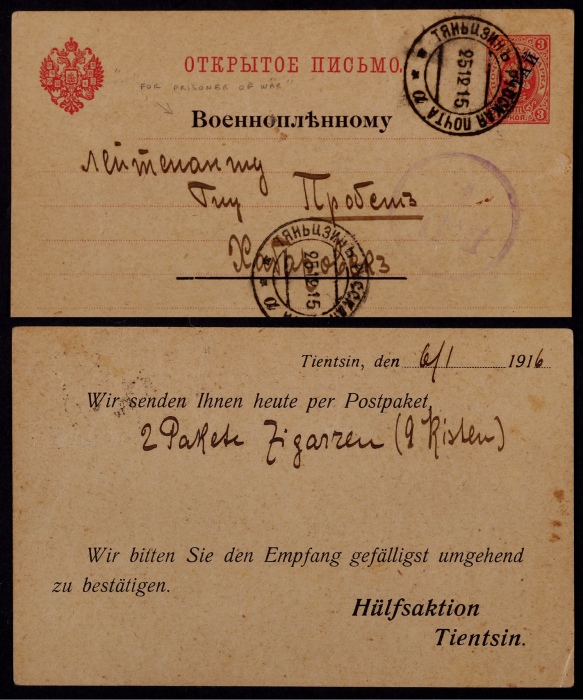 ОТКРЫТОЕ ПИСЬМО.
"FOR PRISONER OF WAR"
Военноплѣнному
Лейтенанту
Пробстъ
Хабаровскъ
ТЯНЬЦЗИНЬ
25 12 15
РУССКАЯ ПОЧТА
3
3
ТЯНЬЦЗИНЬ
25 12 15
Tientsin, den 6/I 1916
Wir senden Ihnen heute per Postpaket,
2 Pakete Zigarren (2 Kisten)
Wir bitten Sie den Empfang gefälligst umgehend
zu bestätigen.
Hülfsaktion
Tientsin.